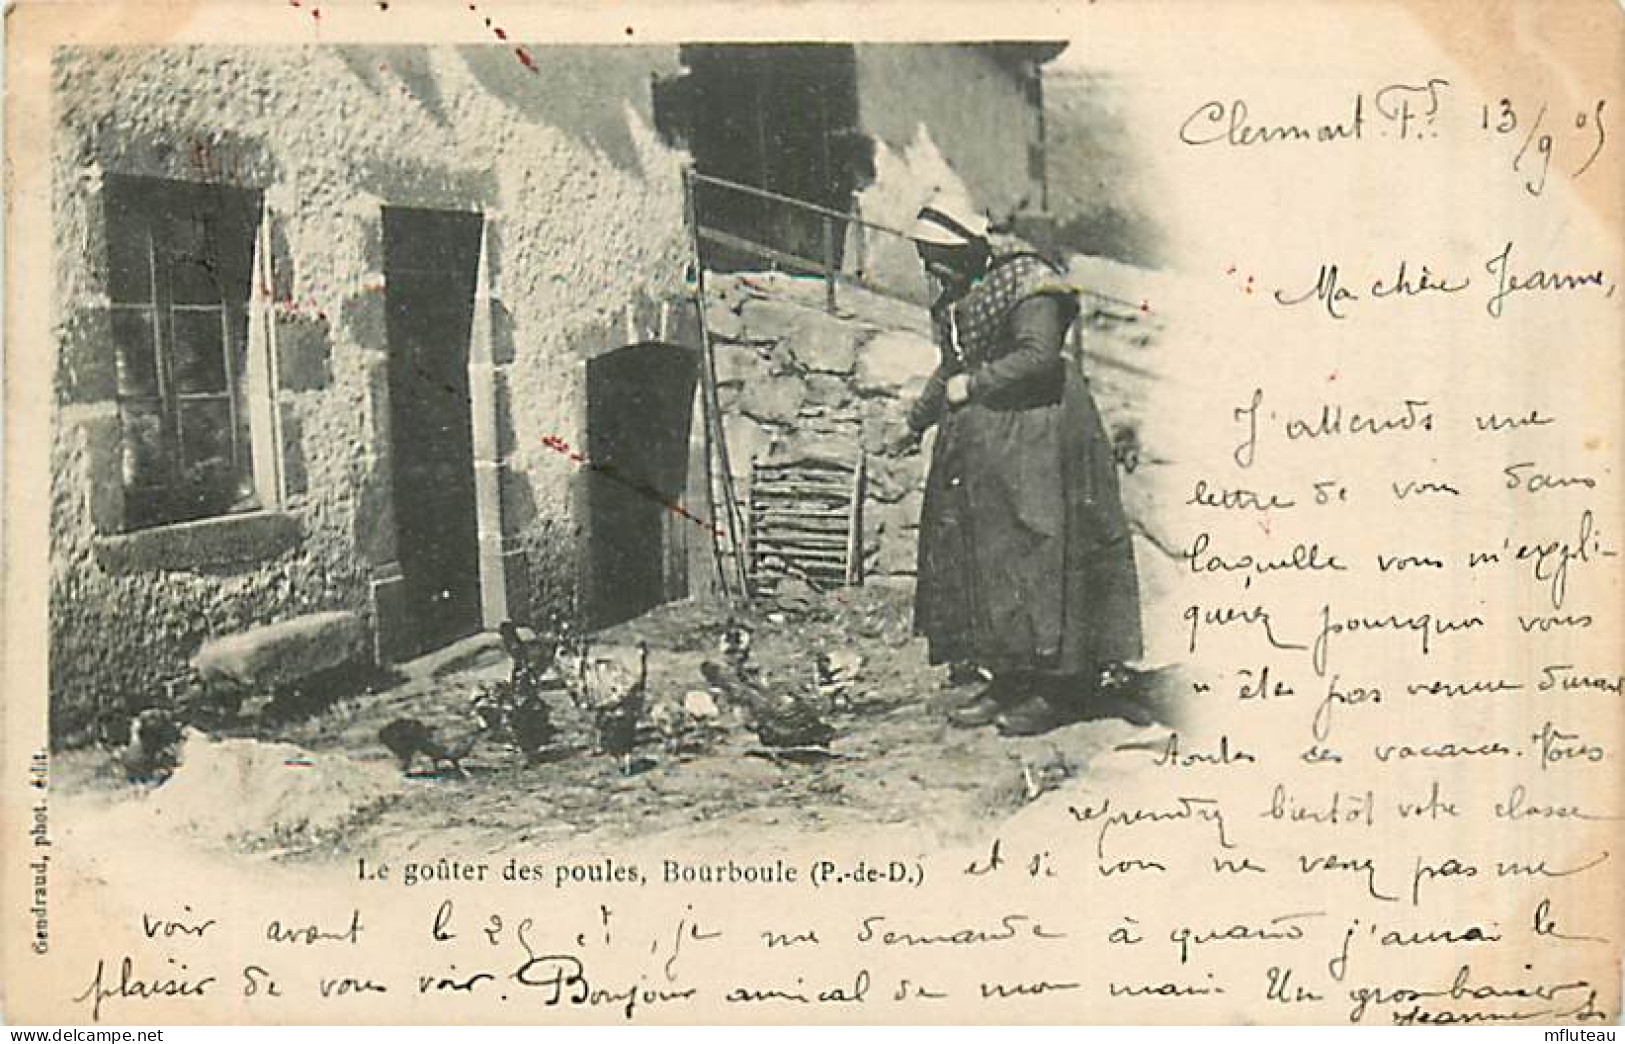 Clermont Fd. 13/9 05
Ma chère Jeanne,
J'attends une
lettre de vous dans
laquelle vous m'expli-
querez pourquoi vous
n'êtes pas venue durant
toutes ces vacances. Vous
reprendrez bientôt votre classe
Le goûter des poules, Bourboule (P.-de-D.)
et si vous ne venez pas me
voir avant le 25 ct, je me demande à quand j'aurai le
plaisir de vous voir. Bonjour amical de mon mari. Un gros baiser
Jeanne
Gendraud, phot. édit.
mfluteau